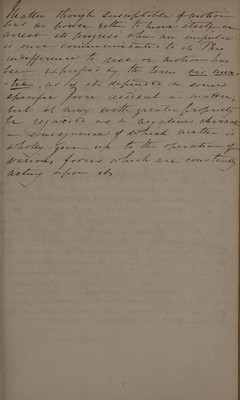 Matter though susceptible of motion
has no power either to move itself or
arrest its progress when an impulse
is once communicated to it. This
indifference to rest or motion has
been expressed by the term vis iner-
tiæ, as if it depended on some
specific force resident in matter,
but it may with greater propriety
be regarded as a negative character
in consequence of which matter is
wholly given up to the operation of
various forces which are constantly
acting upon it.